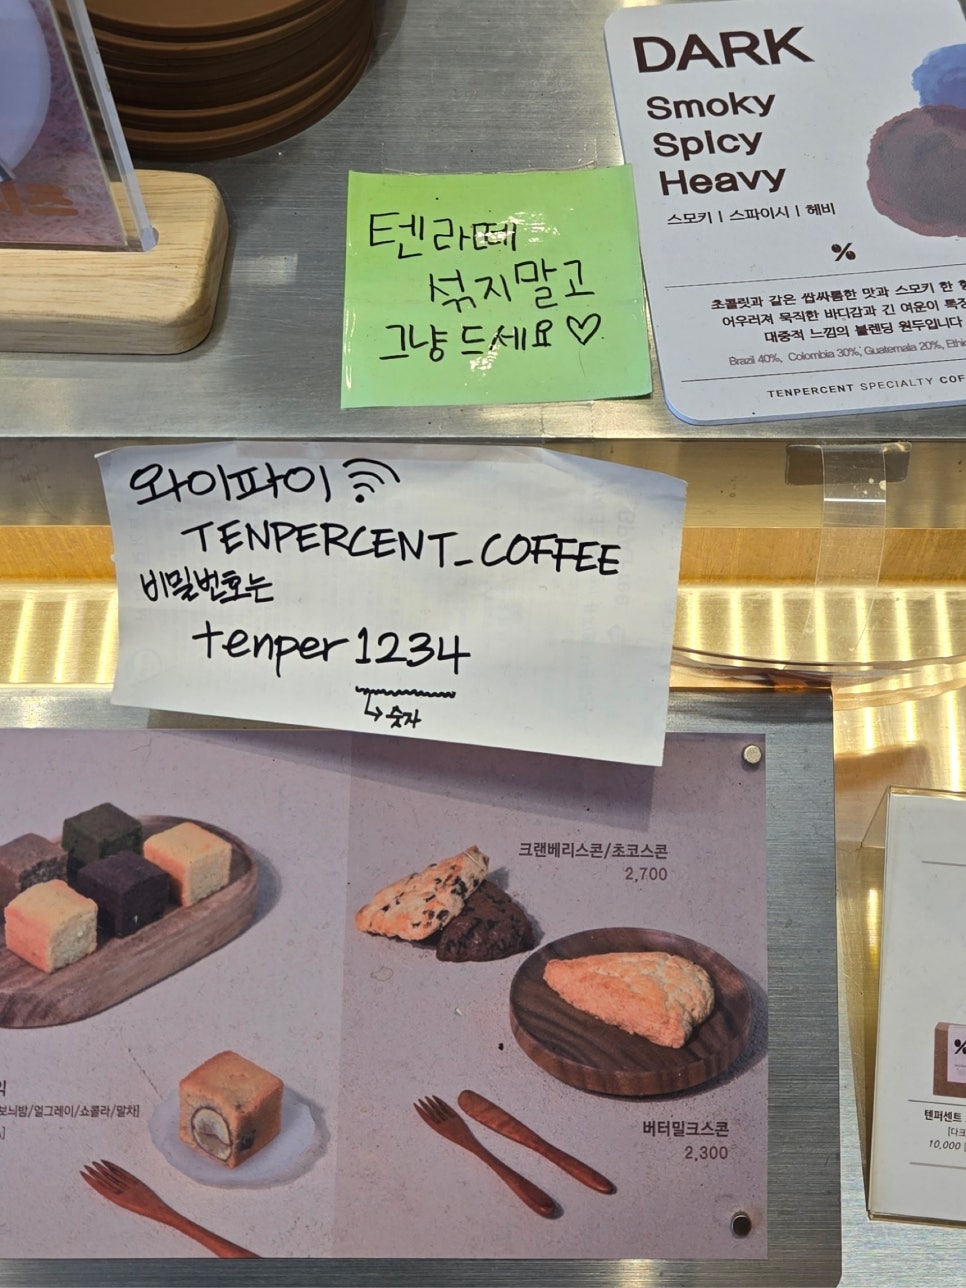 DARK
Smoky
Spicy
Heavy
스모키 | 스파이시 | 헤비
%
초콜릿과 같은 쌉싸름한 맛과 스모키 한
어우러져 묵직한 바디감과 긴 여운이
대중적 느낌의 블렌딩 원두입니다
Brazil 40%, Colombia 30%, Guatemala 20%,
TENPERCENT SPECIALTY
텐라떼
섞지말고
그냥 드세요♡
와이파이
TENPERCENT_COFFEE
비밀번호는
tenper1234
↳숫자
크랜베리스콘/초코스콘
2,700
버터밀크스콘
2,300
보늬밤/얼그레이/쇼콜라/말차]
%
텐퍼센트
10,000